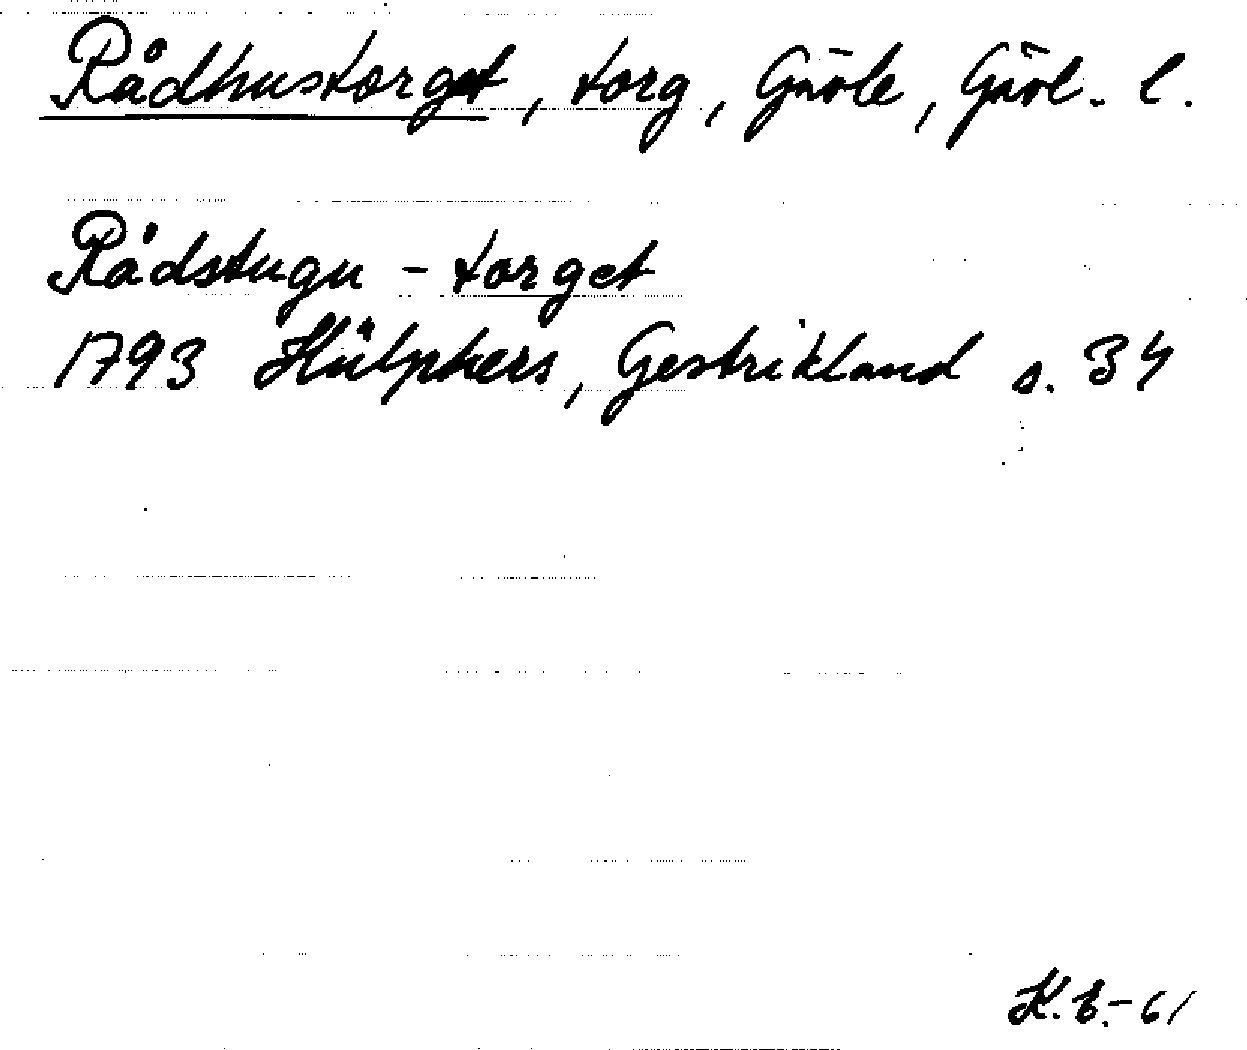 Rådhustorget, torg, Gävle, Gävl. l.
Rådstugu - torget
1793 Hülphers, Gestrikland s. 34
K.B.-61